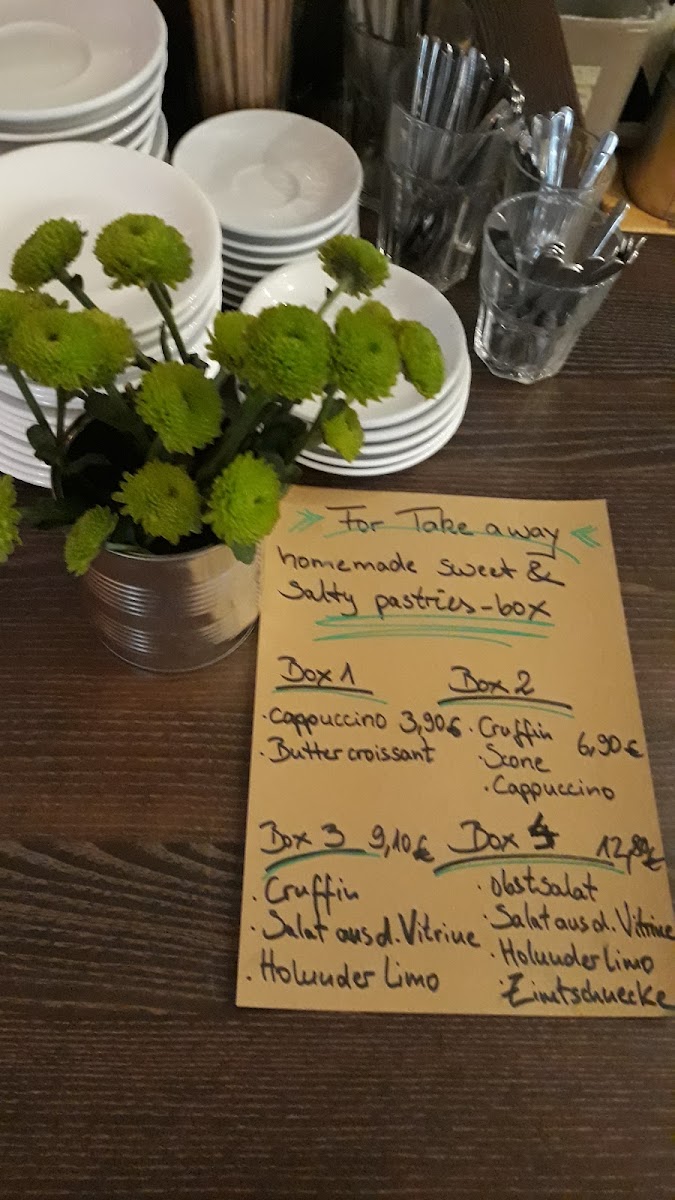 For Take away
homemade sweet &
Salty pastries-box
Box 1
· Cappuccino 3,90€
· Buttercroissant
Box 2
· Cruffin
· Scone 6,90€
· Cappuccino
Box 3 9,10€
· Cruffin
· Salat aus d. Vitrine
· Holunder Limo
Box 4 12,80€
· Obstsalat
· Salat aus d. Vitrine
· Holunder Limo
· Zimtschnecke